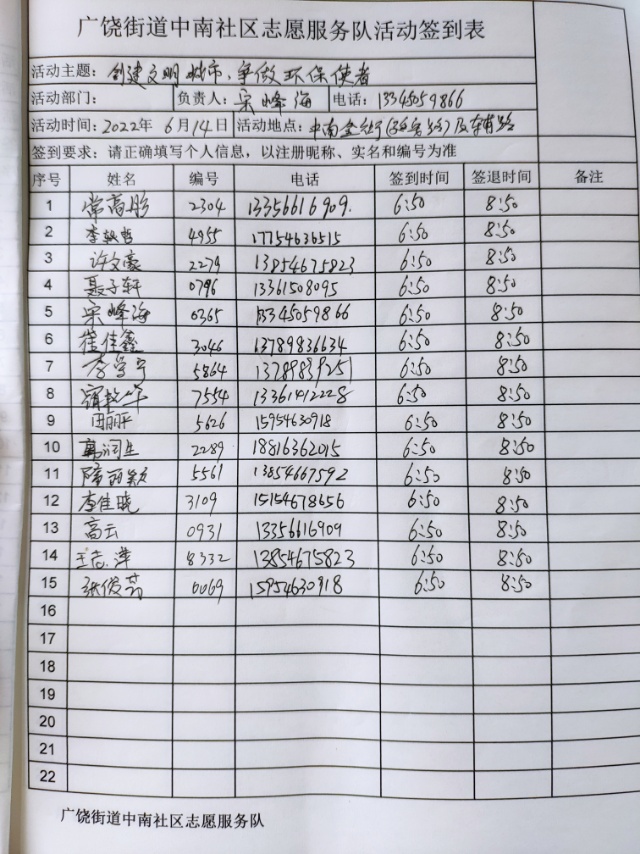 广饶街道中南社区志愿服务队活动签到表
活动主题: 创建文明城市、争做环保使者
活动部门: 负责人: 宋峰海 电话: 13345059866
活动时间: 2022年6月14日 活动地点: 中南
签到要求: 请正确填写个人信息，以注册昵称、实名和编号为准
序号 姓名 编号 电话 签到时间 签退时间 备注
1 常高彤 2304 13356616909. 6:50 8:50
2 4955 17754636515 6:50 8:50
3 许文豪 2279 13854675823 6:50 8:50
4 聂子轩 0796 13361508095 6:50 8:50
5 宋峰海 0365 13345059866 6:50 8:50
6 崔佳鑫 3046 13789836634 6:50 8:50
7 李学宁 5864 13789839251 6:50 8:50
8 7554 13361412228 6:50 8:50
9 田丽平 5626 15954630918 6:50 8:50
10 2289 18816362015 6:50 8:50
11 5561 13854667592 6:50 8:50
12 李佳晓 3109 15154678656 6:50 8:50
13 高云 0931 13356616909 6:50 8:50
14 王志洋 8332 13854675823 6:50 8:50
15 张俊芳 0069 15954630918 6:50 8:50
16
17
18
19
20
21
22
广饶街道中南社区志愿服务队